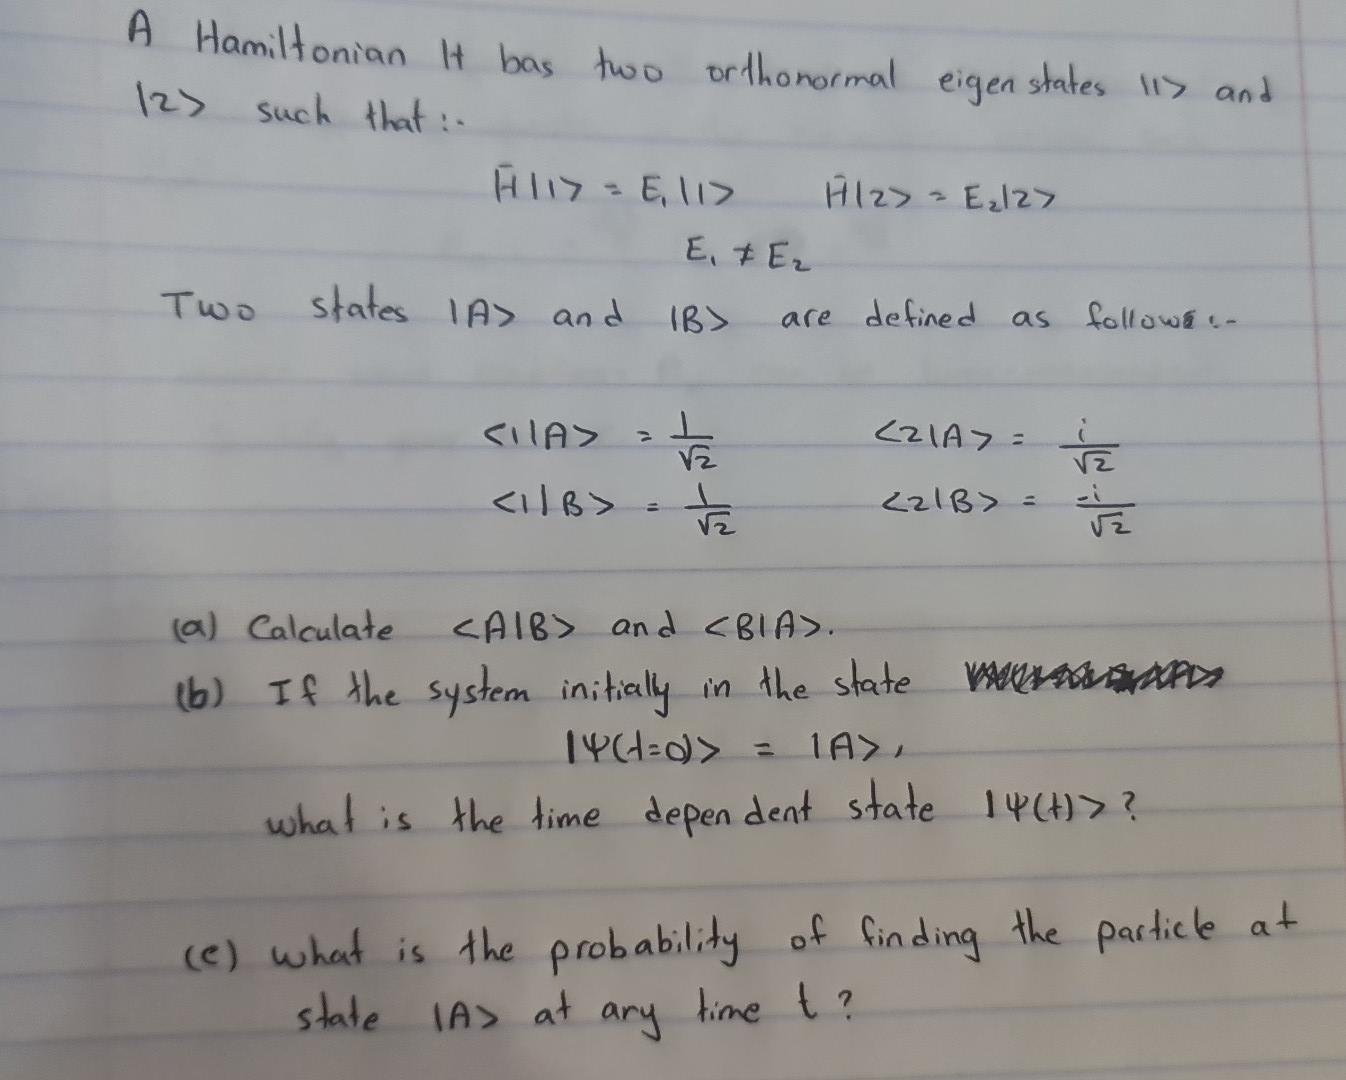 A Hamiltonian H has two orthonormal eigen states |1> and
|2> such that :-
H̄|1> = E₁|1> H̄|2> = E₂|2>
E₁ ≠ E₂
Two states |A> and |B> are defined as follows :-
<1|A> = 1/√2 <2|A> = i/√2
<1|B> = 1/√2 <2|B> = -i/√2
(a) Calculate <A|B> and <B|A>.
(b) If the system initially in the state
|Ψ(t=0)> = |A>,
what is the time dependent state |Ψ(t)> ?
(c) what is the probability of finding the particle at
state |A> at any time t ?